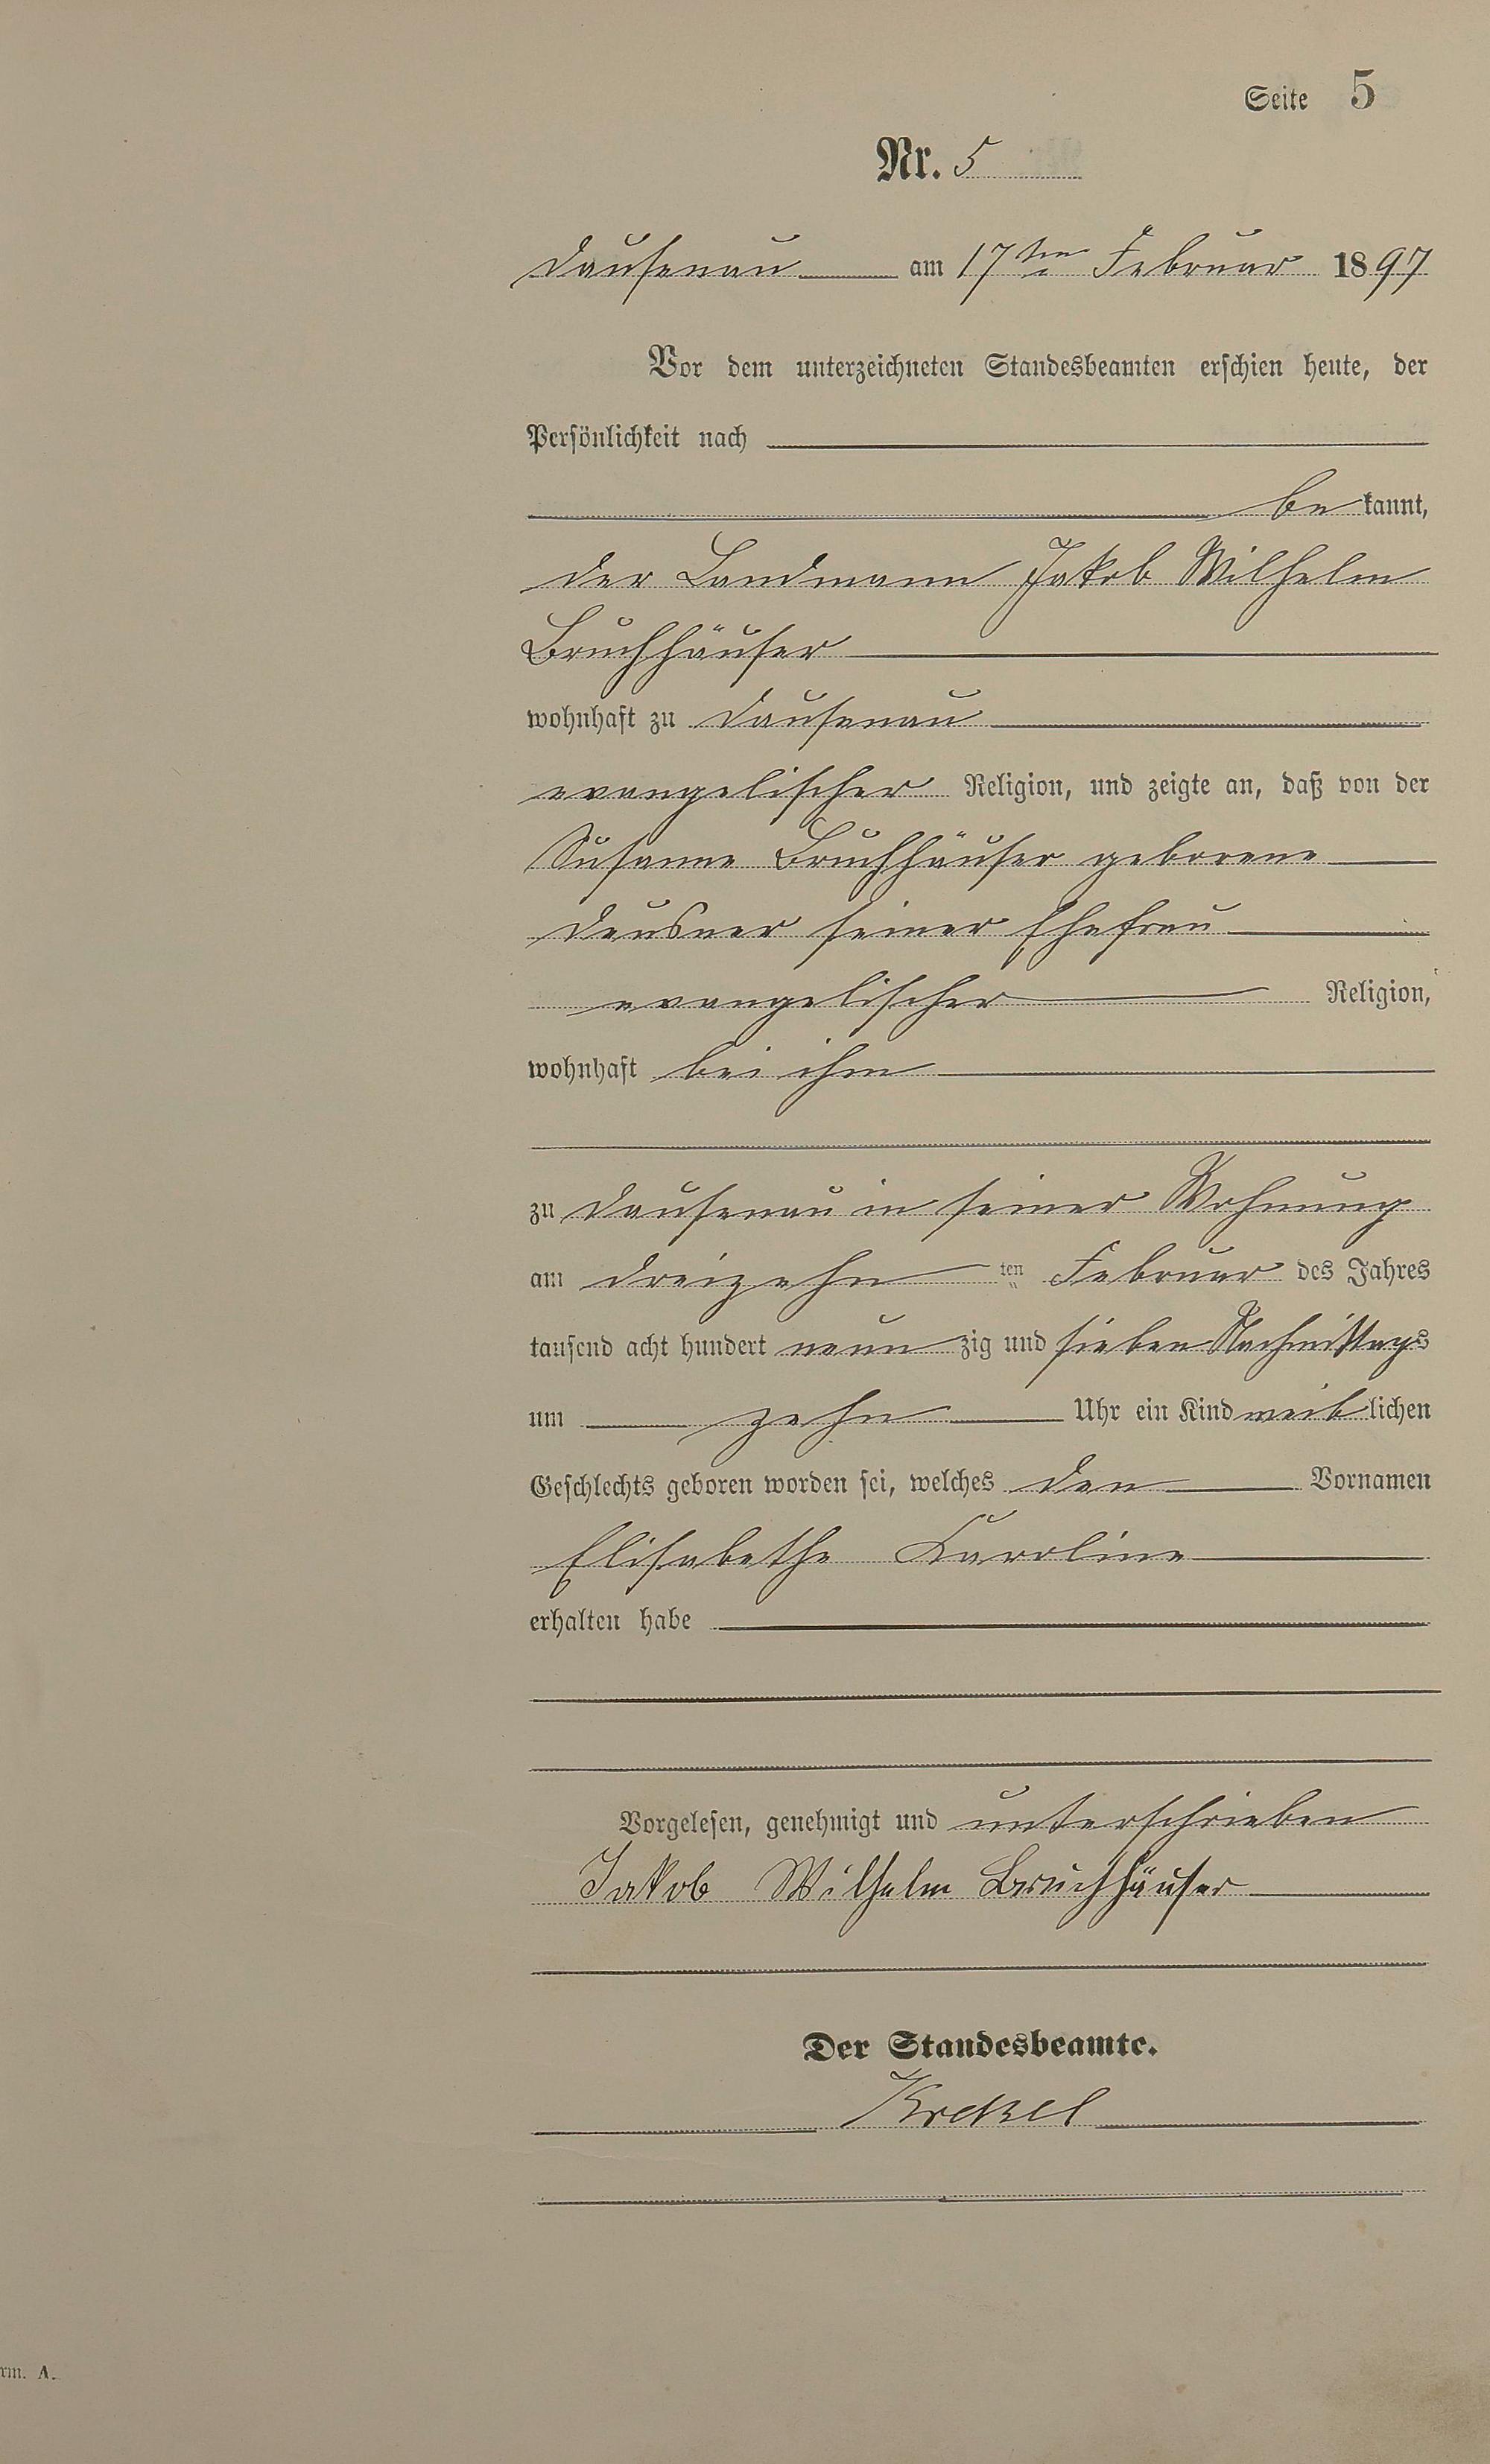 Seite 5
Nr. 5
Dausenau am 17ten Februar 1897
Vor dem unterzeichneten Standesbeamten erschien heute, der
Persönlichkeit nach
be kannt,
der Landmann Jakob Wilhelm
Bruchhäuser
wohnhaft zu Dausenau
evangelischer Religion, und zeigte an, daß von der
Susanne Bruchhäuser geborene
Deusner seiner Ehefrau
evangelischer Religion,
wohnhaft bei ihm
zu Dausenau in seiner Wohnung
am dreizehn ten Februar des Jahres
tausend acht hundert neun zig und sieben Nachmittags
um zehn Uhr ein Kind weib lichen
Geschlechts geboren worden sei, welches den Vornamen
Elisabethe Karoline
erhalten habe
Vorgelesen, genehmigt und unterschrieben
Jakob Wilhelm Bruchhäuser
Der Standesbeamte.
Krekel
rm. A.